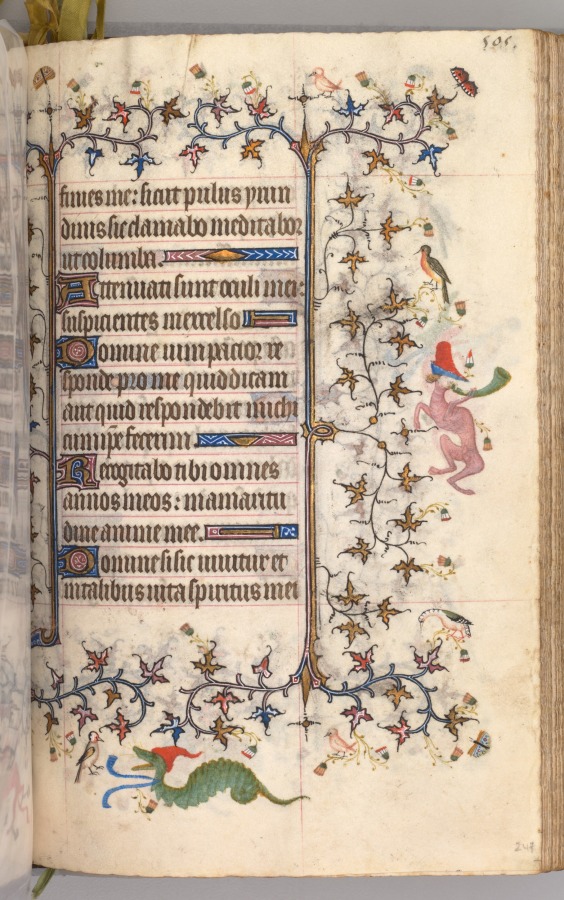 505.
fines me: sicut pullus yrun
dinis sic clamabo meditabor
ut columba.
Attenuati sunt oculi mei:
suspicientes in excelso
Domine vim pacior re
sponde pro me quid dicam
aut quid respondebit michi
cum ipse fecerim
Recogitabo tibi omnes
annos meos: in amaritu
dine anime mee.
Domine si sic vivitur et
in talibus vita spiritus mei